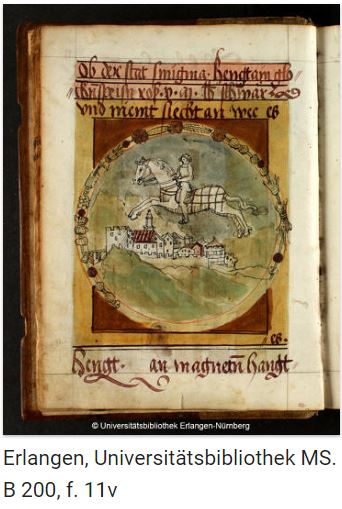 Ob der stat smigina. Hengt am glo
schwar
vnd niemt siecht an wee es
es.
Hengt. an magneten hangt
© Universitätsbibliothek Erlangen-Nürnberg
Erlangen, Universitätsbibliothek MS.
B 200, f. 11v